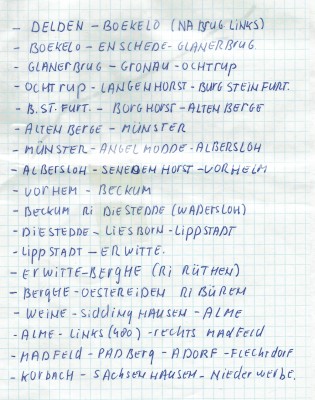 - DELDEN - BOEKELO (NA BRUG LINKS)
- BOEKELO - ENSCHEDE - GLANERBRUG
- GLANERBRUG - GRONAU - OCHTRUP
- OCHTRUP - LANGENHORST - BURG STEINFURT.
- B.ST. FURT. - BORGHORST - ALTEN BERGE
- ALTEN BERGE - MÜNSTER
- MÜNSTER - ANGELMODDE - ALBERSLOH
- ALBERSLOH - SENDEN HORST - VORHEIM
- VORHEM - BECKUM
- BECKUM RI DIESTEDDE (WADERSLOH)
- DIESTEDDE - LIESBORN - LIPPSTADT
- LIPPSTADT - ERWITTE.
- ERWITTE - BERGHE (RI RÜTHEN)
- BERGHE - OESTEREIDEN RI BÜREN
- WEINE - SIDDINGHAUSEN - ALME
- ALME - LINKS (480) - RECHTS MADFELD
- MADFELD - PADBERG - ADORF - FLECHTDORF
- KORBACH - SACHSENHAUSEN - NIEDER WERBE.